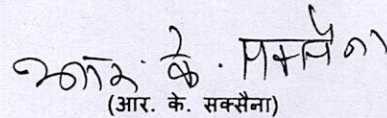 आर. के. सक्सैना
(आर. के. सक्सैना)